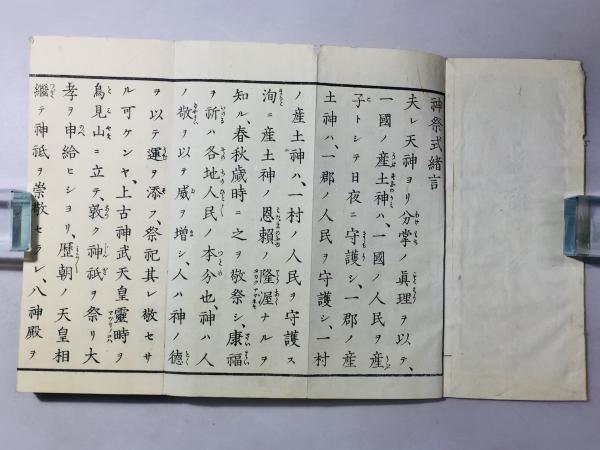 神祭式緒言
夫レ天神ヨリ分掌ノ眞理ヲ以テ、
一國ノ産土神ハ、一國ノ人民ヲ産
子トシテ日夜ニ守護シ、一郡ノ産
土神ハ、一郡ノ人民ヲ守護シ、一村
ノ産土神ハ、一村ノ人民ヲ守護ス
洵ニ産土神ノ恩賴ノ隆渥ナルヲ
知ル、春秋歳時ニ之ヲ敬祭シ、康福
ヲ祈ハ各地人民ノ本分也、神ハ人
ノ敬ヲ以テ威ヲ増シ、人ハ神ノ德
ヲ以テ運ヲ添フ、祭祀其レ敬セサ
ル可ケンヤ、上古神武天皇靈畤ヲ
鳥見山ニ立テ、敦ク神祇ヲ祭リ大
孝ヲ申給ヒシヨリ、歴朝ノ天皇相
繼テ神祇ヲ崇敬セラレ、八神殿ヲ